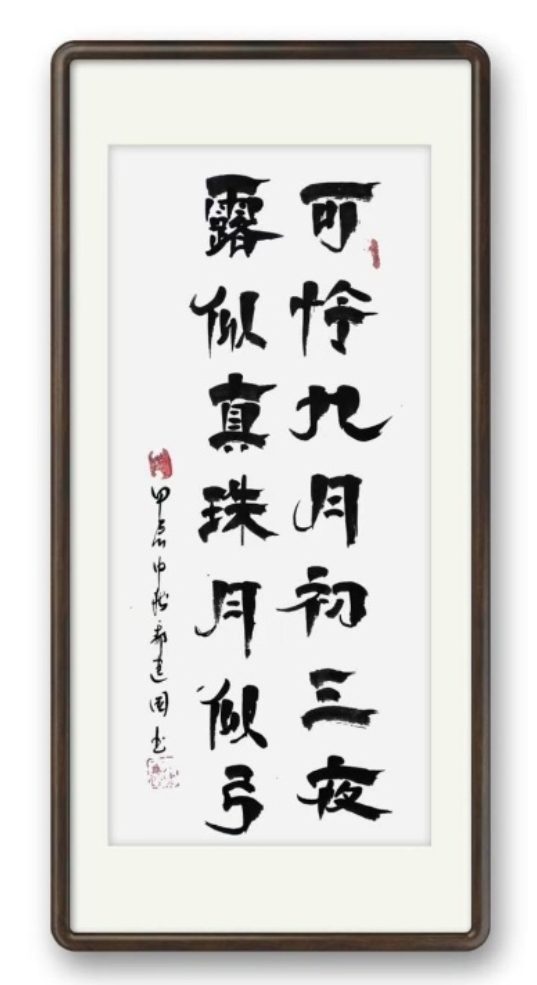 可怜九月初三夜
露似真珠月似弓
甲辰中秋郝建国书